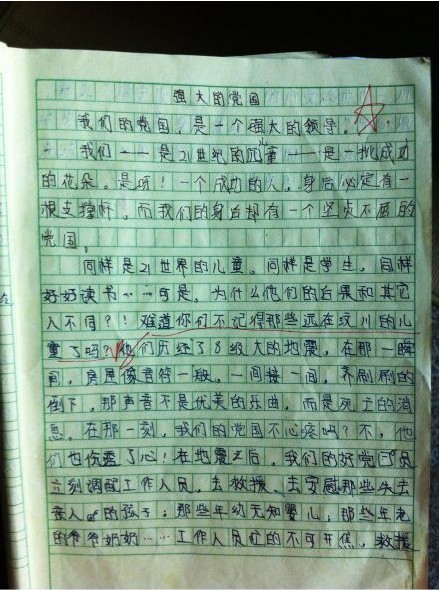 强大的党国
我们的党国,是一个强大的领导。
我们——是21世纪的儿童——是一批成功
的花朵。是呀!一个成功的人,身后必定有一
根支撑杆,而我们的身后却有一个坚贞不屈的
党国。
同样是21世界的儿童。同样是学生,同样
好好读书……可是,为什么他们的后果和其它
人不同?!难道你们不记得那些远在汶川的儿
童了吗?他们历经了8级大的地震,在那一瞬
间,房屋像音符一般,一间接一间,齐刷刷的
倒下,那声音不是优美的乐曲,而是死亡的消
息。在那一刻,我们的党国不心疼吗?不,他
们也伤透了心!在地震之后,我们的好党
立刻调配工作人员,去救援、去安慰那些失去
亲人的孩子;那些年幼无知婴儿;那些年老
的爷爷奶奶……工作人员忙的不可开焦,救援